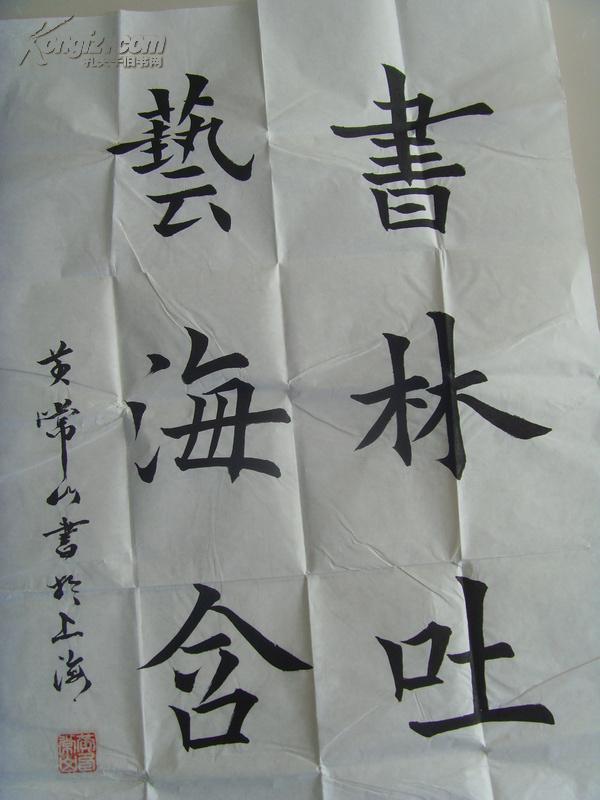 書林吐
藝海含
黄常山書於上海
Kongfz.com
孔夫子旧书网